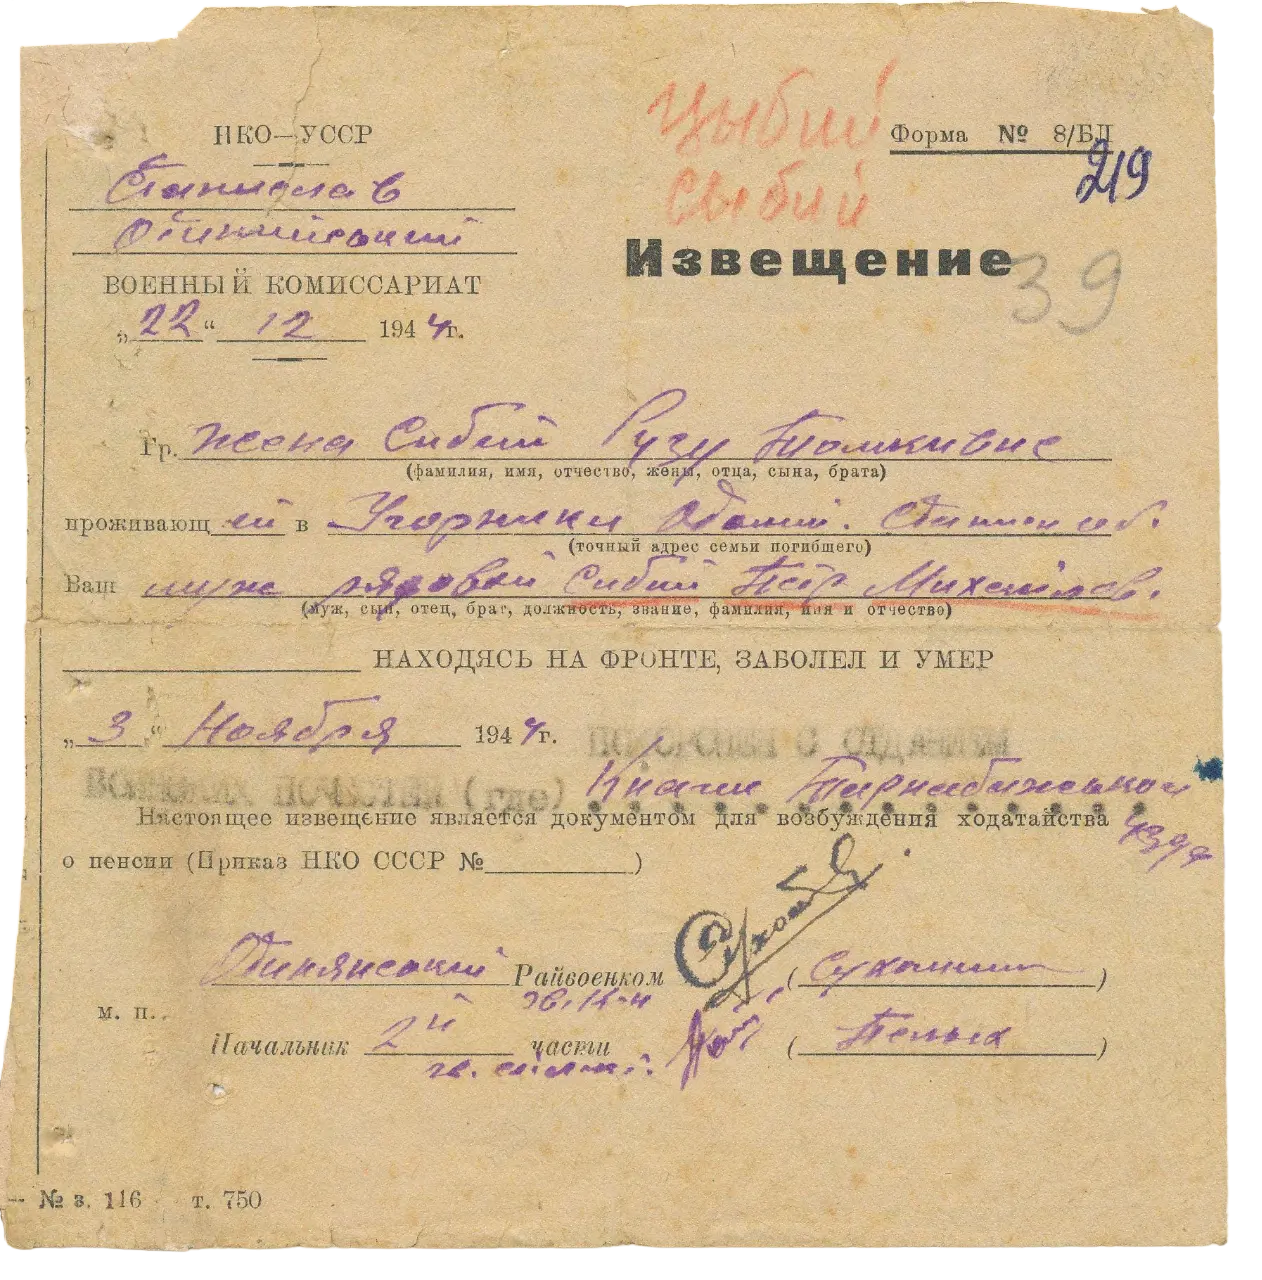 Цыбий
Сыбий
НКО—УССР
Форма № 8/БП
219
Станислав
Извещение
39
ВОЕННЫЙ КОМИССАРИАТ
„22“ 12 1944г.
Гр. жена Сибий Рузу
(фамилия, имя, отчество, жены, отца, сына, брата)
проживающ ей в Угорники
(точный адрес семьи погибшего)
Ваш муж рядовой Сибий Петр Михайлов.
(муж, сын, отец, брат, должность, звание, фамилия, имя и отчество)
НАХОДЯСЬ НА ФРОНТЕ, ЗАБОЛЕЛ И УМЕР
„3“ Ноября 1944г. ПОХОРОНЕН С ОТДАНИЕМ
ВОИНСКИХ ПОЧЕСТЕЙ (где)
Настоящее извещение является документом для возбуждения ходатайства
о пенсии (Приказ НКО СССР № )
Райвоенком
м. п.
Начальник 2й части
— № з. 116 т. 750